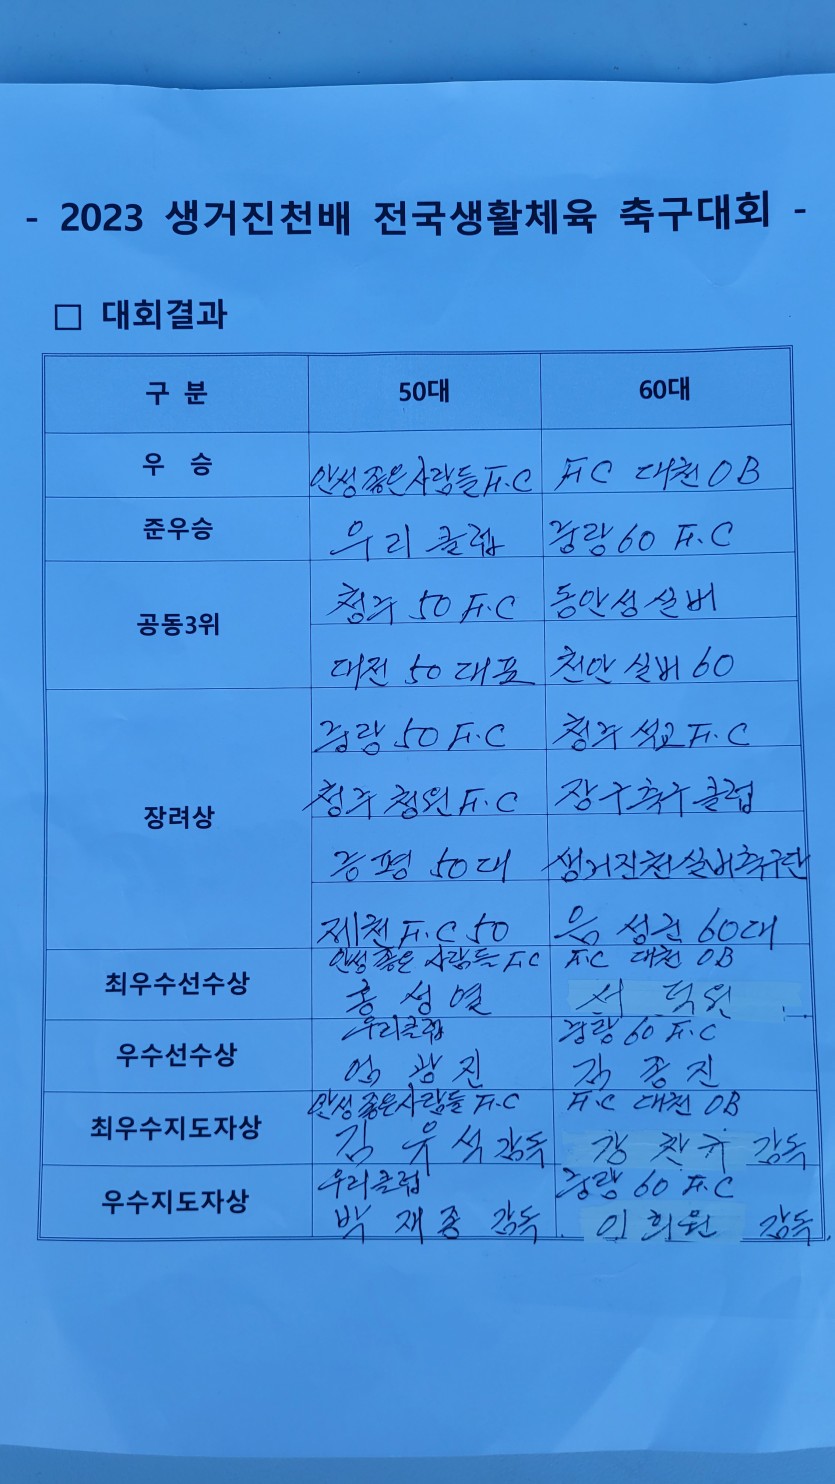 - 2023 생거진천배 전국생활체육 축구대회 -
□ 대회결과
구 분 50대 60대
우 승 안성좋은사람들F.C FC 대천OB
준우승 우리클럽 중랑60 F.C
공동3위
청주 50 F.C 동안성실버
대전 50 대표 천안실버60
장려상
중랑 50 F.C 청주 석교F.C
청주 청원F.C 장구축구클럽
증평 50대 생거진천실버축구단
제천F.C 50 음성권60대
안성좋은 사람들F.C F.C 대천 OB
최우수선수상 홍성열 서덕원
우리클럽 중랑60 F.C
우수선수상 광진 김종진
안성좋은사람들 F.C F.C 대천 OB
최우수지도자상 김우석감독 강찬규 감독
우리클럽 중랑 60 F.C
우수지도자상 박재종 감독. 이희원 감독.